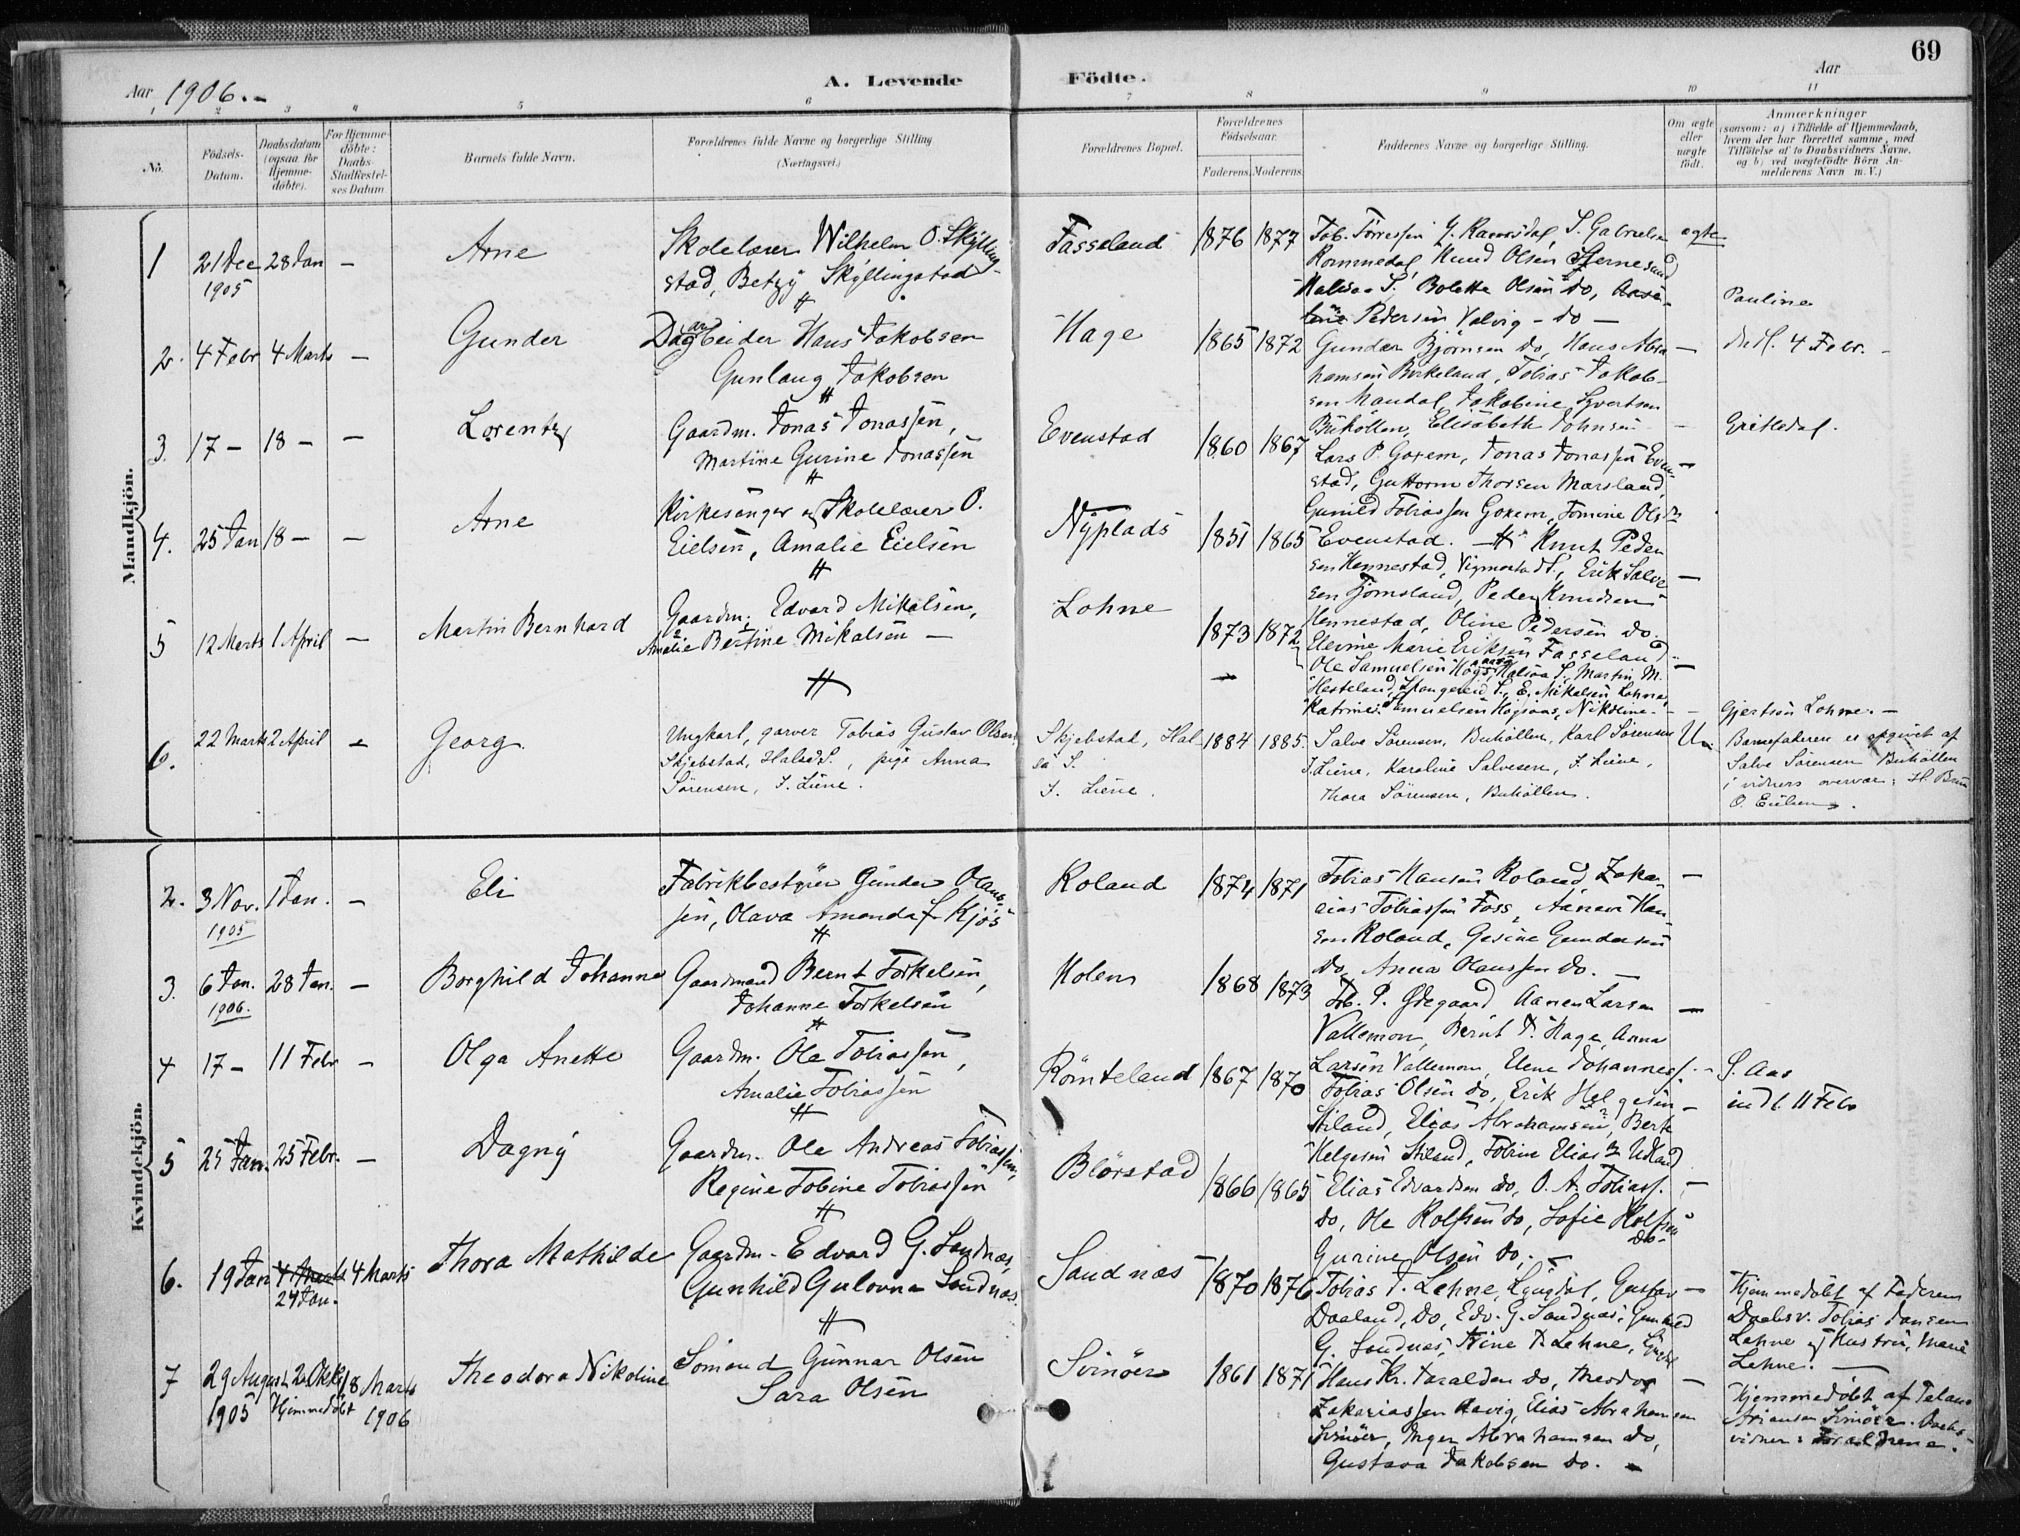 69
Aar 1906.-
A. Levende Födte.
Aar
1 2 3 4 5 6 7 8 9 10 11
No.
Födsels-Datum.
Daabsdatum (ogsaa for Hjemme-döbte).
For Hjemme-döbte: Daabs-Stadfæstel-ses Datum
Barnets fulde Navn.
Forældrenes fulde Navne og borgerlige Stilling (Næringsvei.)
Forældrenes Bopæl.
Forældrenes Födselsaar.
Faderens. Moderens.
Faddernes Navne og borgerlige Stilling.
Om ægte eller uægte födt.
Anmærkninger
(saasom: a) i Tilfælde af Hjemmedaab, hvem der har forrettet samme, med Tilföielse af to Daabsvidners Navne, og b) ved uægtefödte Börn An-melderens Navn m.V.)
Mandkjön.
1 21 Dec 1905 28 Jan - Arne
Skolelærer Wilhelm O. Skylling-
stad, Betzy Skyllingstad
Fasseland 1876 1877
Tob. Tørressen Y. Ramsdal, S. Gabrielsen ægte
Rommedal, Knud Olsen Sternesand
Halsaa S. Bolette Olsen do,
Pedersen Valvig - do -
Pauline
2. 4 Febr 4 Marts - Gunder
Dagarbeider Hans Jakobsen
Gunlaug Jakobsen
Hage 1865 1872
Gunder Bjornsen do, Hans Abra- -
hamsen Birkeland, Tobias Jakob-
sen Mandal, Jakobine Syvertsen
Buhöllen, Elisabeth Johnsen
4 Febr. -
3. 17 - 18 - - Lorentz
Gaardm. Jonas Jonassen,
Martine Gurine Jonassen
Evenstad 1860 1867
Lars P. Goxem, Jonas Jonassen Even- -
stad, Guttorm Thorsen Marsland,
Gunild Tobiassen Goxem, Tomine Ols
Evenstad.
4. 25 Jan 18 - - Arne
Kirkesanger og Skolelærer O.
Eielsen, Amalie Eielsen
Nyplads 1851 1865
Knut Peder
sen Hennestad, Vigmostad S., Erik Salve- -
sen Fjomsland, Peder Knudsen
Hennestad, Oline Pedersen do.
Elevine Marie Eriksen Fasseland
5 12 Marts 1 April - Martin Bernhard
Gaardm. Edvard Mikalsen,
Amalie Bertine Mikalsen -
Lohne 1873 1872
Ole Samuelsen Högsaas, Halsaa S., Martin M. -
Hesteland, Spangereid S., E. Mikalsen Lohne,
Katrine Samuelsen Högsaas, Nikoline -
Gjertsen Lohne. -
6. 22 Marts 2 April - Georg.
Ungkarl, garver Tobias Gustav Olsen
Skjebstad, Halsaa S., pige Anna
Sörensen, I. Liene.
Skjebstad, Hal-
sa S.
I. Liene.
1884 1885.
Salve Sörensen, Buhöllen, Karl Sörensen
I. Liene, Karoline Salvesen, I. Liene,
Thora Sörensen, Buhöllen.
U.
Barnefaderen er opgivet af
Salve Sörensen Buhöllen
i vidners overvær: H. Bruun
O. Eielsen.
Kvindekjön.
2. 3 Nov. 1905 1 Jan. - Eli
Fabrikbestyrer Gunder Olaus-
sen, Olava Amanda f. Kjös
Roland 1874 1871
Tobias Hansen Roland, Zaka- -
rias Tobiassen Foss, Aanen Han-
sen Roland, Gesine Gundersen
do, Anna Olaussen do. -
3. 6 Jan. 1906. 28 Jan. - Borghild Johanne
Gaardmand Bernt Torkelsen,
Johanne Torkelsen
Holem 1868 1873
Tob. P. Ødegaard Aanen Larsen -
Vallemon, Bernt T. Hage, Anna
Larsen Vallemon, Elene Johannes
S. Aas
4 17 - 11 Febr - Olga Anette
Gaardm. Ole Tobiassen,
Amalie Tobiassen
Römteland 1867 1870
Tobias Olsen do, Erik Helgesen -
Stiland, Elias Abrahamsen, Berte
Helgesen Stiland, Tobine Elias
indl. 11 Febr
5 25 Jan. 25 Febr. - Dagny
Gaardm. Ole Andreas Tobiassen,
Regine Tobine Tobiassen
Blörstad 1866 1865
Elias Edvardsen do, O. A. Tobiass. -
do, Ole Rolfsen do, Sofie Rolfsen
do.
Gurine Olsen do. -
6. 19 Jan 4 Marts 24 Jan. 4 Marts Thora Mathilde
Gaardm. Edvard G. Sandnæs,
Gunhild Gulovna Sandnæs.
Sandnæs 1870 1876
Tobias J. Lehne, Lyngdal, Gustav -
Daaland, do, Edv. G. Sandnæs, Gunhild
G. Sandnæs, Trine T. Lehne,
Hjemmedöbt af Faderen
Daabsv. Tobias Jansen
Lehne og Hustru, Marie
Lehne. -
7 29 August 1905 2 Oktb Hjemmedöbt 18 Marts 1906 Theodora Nikoline
Sömand Gunnar Olsen
Sara Olsen
Svinöer 1861 1871
Hans Kr. Taraldsen do, Theodor -
Zakariassen Aavig, Elias Abrahamsen
Svinöer, Inger Abrahamsen do,
Gustava Jakobsen do. -
Hjemmedöbt af
Svinöer. Daabs-
vidner: Forældrene.